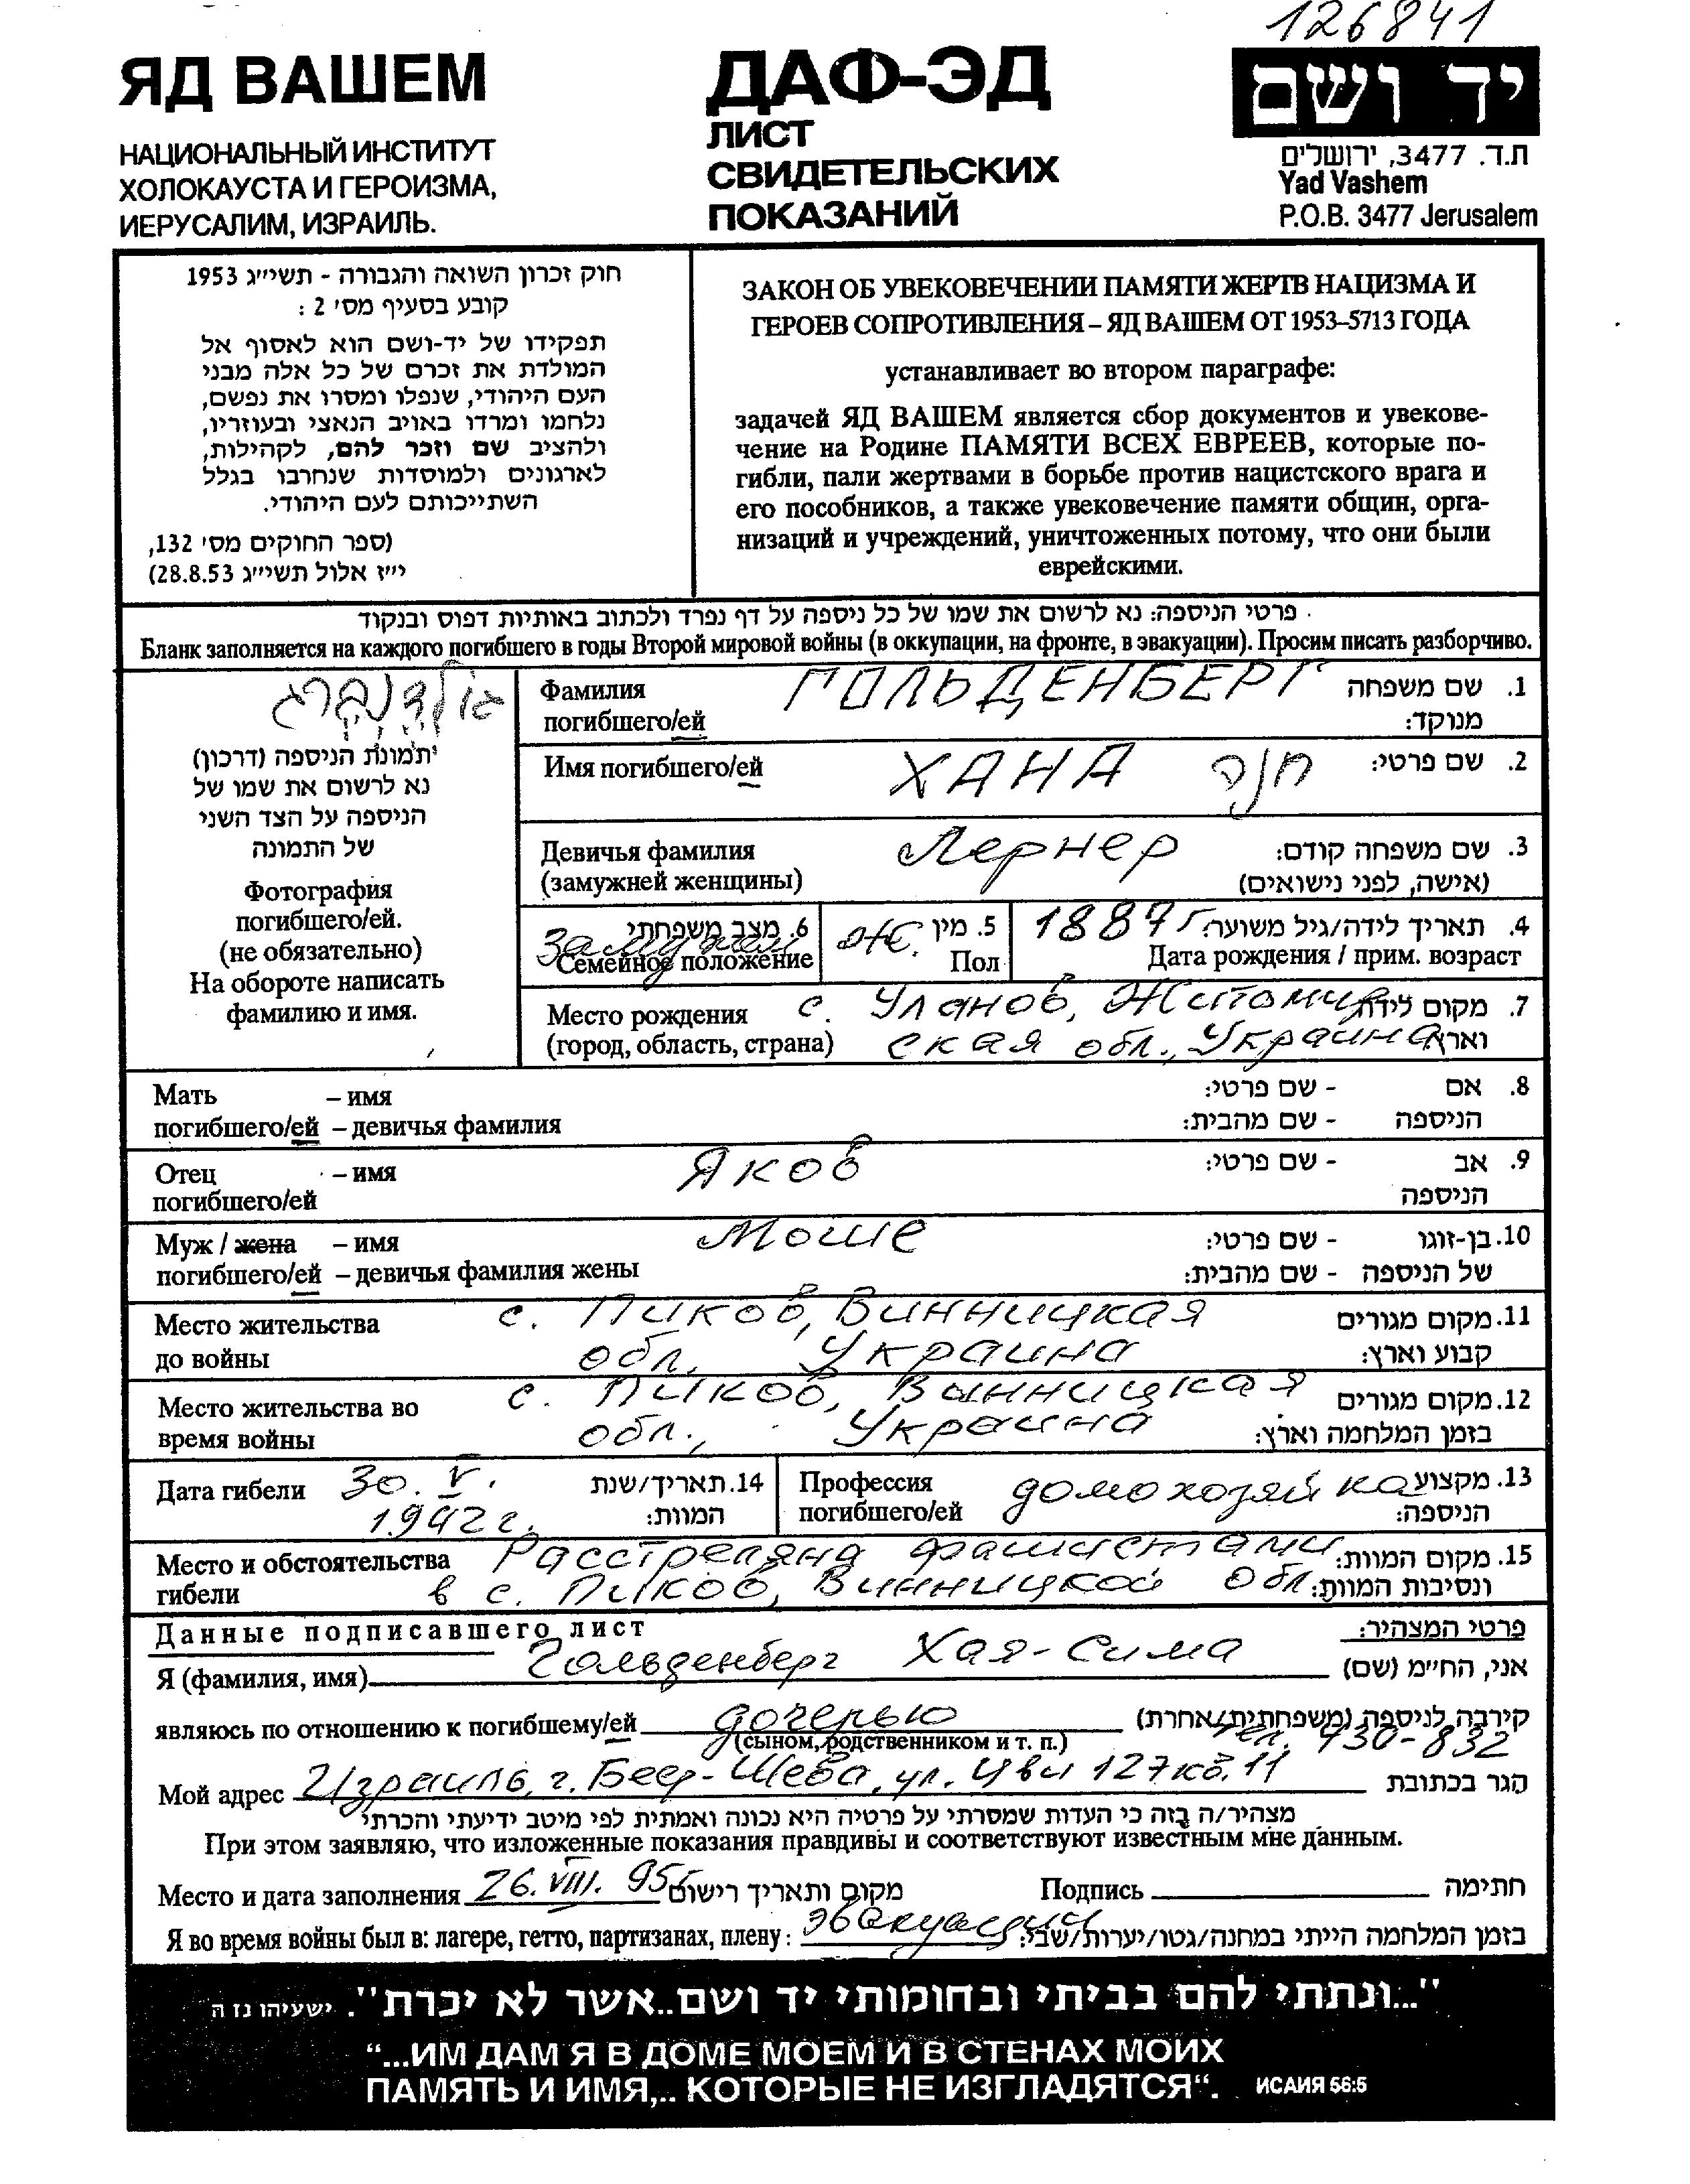 126841
ЯД ВАШЕМ
НАЦИОНАЛЬНЫЙ ИНСТИТУТ
ХОЛОКАУСТА И ГЕРОИЗМА,
ИЕРУСАЛИМ, ИЗРАИЛЬ.
ДАФ-ЭД
ЛИСТ
СВИДЕТЕЛЬСКИХ
ПОКАЗАНИЙ
יד ושם
ת.ד. 3477, ירושלים
Yad Vashem
P.O.B. 3477 Jerusalem
חוק זכרון השואה והגבורה - תשי״ג 1953
קובע בסעיף מס׳ 2 :
תפקידו של יד-ושם הוא לאסוף אל
המולדת את זכרם של כל אלה מבני
העם היהודי, שנפלו ומסרו את נפשם,
נלחמו ומרדו באויב הנאצי ובעוזריו,
ולהציב שם וזכר להם, לקהילות,
לארגונים ולמוסדות שנחרבו בגלל
השתייכותם לעם היהודי.
(ספר החוקים מס׳ 132,
י״ז אלול תשי״ג 28.8.53)
ЗАКОН ОБ УВЕКОВЕЧЕНИИ ПАМЯТИ ЖЕРТВ НАЦИЗМА И
ГЕРОЕВ СОПРОТИВЛЕНИЯ – ЯД ВАШЕМ ОТ 1953–5713 ГОДА
устанавливает во втором параграфе:
задачей ЯД ВАШЕМ является сбор документов и увекове-
чение на Родине ПАМЯТИ ВСЕХ ЕВРЕЕВ, которые по-
гибли, пали жертвами в борьбе против нацистского врага и
его пособников, а также увековечение памяти общин, орга-
низаций и учреждений, уничтоженных потому, что они были
еврейскими.
פרטי הניספה: נא לרשום את שמו של כל ניספה על דף נפרד ולכתוב באותיות דפוס ובנקוד
Бланк заполняется на каждого погибшего в годы Второй мировой войны (в оккупации, на фронте, в эвакуации). Просим писать разборчиво.
גולדנברג
תמונת הניספה (דרכון)
נא לרשום את שמו של
הניספה על הצד השני
של התמונה
Фотография
погибшего/ей.
(не обязательно)
На обороте написать
фамилию и имя.
Фамилия ГОЛЬДЕНБЕРГ 1. שם משפחה
погибшего/ей מנוקד:
Имя погибшего/ей ХАНА חנה 2. שם פרטי:
Девичья фамилия Лернер 3. שם משפחה קודם:
(замужней женщины) (אישה, לפני נישואים)
замужем 6. מצב משפחתי ж. 5. מין 1887г 4. תאריך לידה/גיל משוער:
Семейное положение Пол Дата рождения / прим. возраст
Место рождения с. Уланов, Житомир 7. מקום לידה
(город, область, страна) ская обл., Украина וארץ
Мать – имя - שם פרטי: 8. אם
погибшего/ей – девичья фамилия - שם מהבית: הניספה
Отец – имя Яков - שם פרטי: 9. אב
погибшего/ей הניספה
Муж / жена – имя Моше - שם פרטי: 10. בן-זוגו
погибшего/ей – девичья фамилия жены - שם מהבית: של הניספה
Место жительства с. Пиков, Винницкая 11. מקום מגורים
до войны обл., Украина קבוע וארץ:
Место жительства во с. Пиков, Винницкая 12. מקום מגורים
время войны обл., Украина בזמן המלחמה וארץ:
Дата гибели 30. V. 14. תאריך/שנת Профессия домохозяйка 13. מקצוע
1942 г. המוות: погибшего/ей הניספה:
Место и обстоятельства Расстреляна фашистами 15. מקום המוות:
гибели в с. Пиков, Винницкой обл. ונסיבות המוות:
Данные подписавшего лист פרטי המצהיר:
Я (фамилия, имя) Гольденберг Хая-Сима אני, החי״מ (שם)
являюсь по отношению к погибшему/ей дочерью קירבה לניספה (משפחתית/אחרת)
(сыном, родственником и т. п.) тел. 430-832
Мой адрес Израиль, г. Беер-Шева, ул. Цви 127 кв. 11 הגר בכתובת
מצהיר/ה בזה כי העדות שמסרתי על פרטיה היא נכונה ואמתית לפי מיטב ידיעתי והכרתי
При этом заявляю, что изложенные показания правдивы и соответствуют известным мне данным.
Место и дата заполнения 26. VIII. 95г מקום ותאריך רישום Подпись חתימה
Я во время войны был в: лагере, гетто, партизанах, плену: эвакуации בזמן המלחמה הייתי במחנה/גטו/יערות/שבי:
"...ונתתי להם בביתי ובחומותי יד ושם..אשר לא יכרת". ישעיהו נז ה
“...ИМ ДАМ Я В ДОМЕ МОЕМ И В СТЕНАХ МОИХ
ПАМЯТЬ И ИМЯ,.. КОТОРЫЕ НЕ ИЗГЛАДЯТСЯ“. ИСАИЯ 56:5